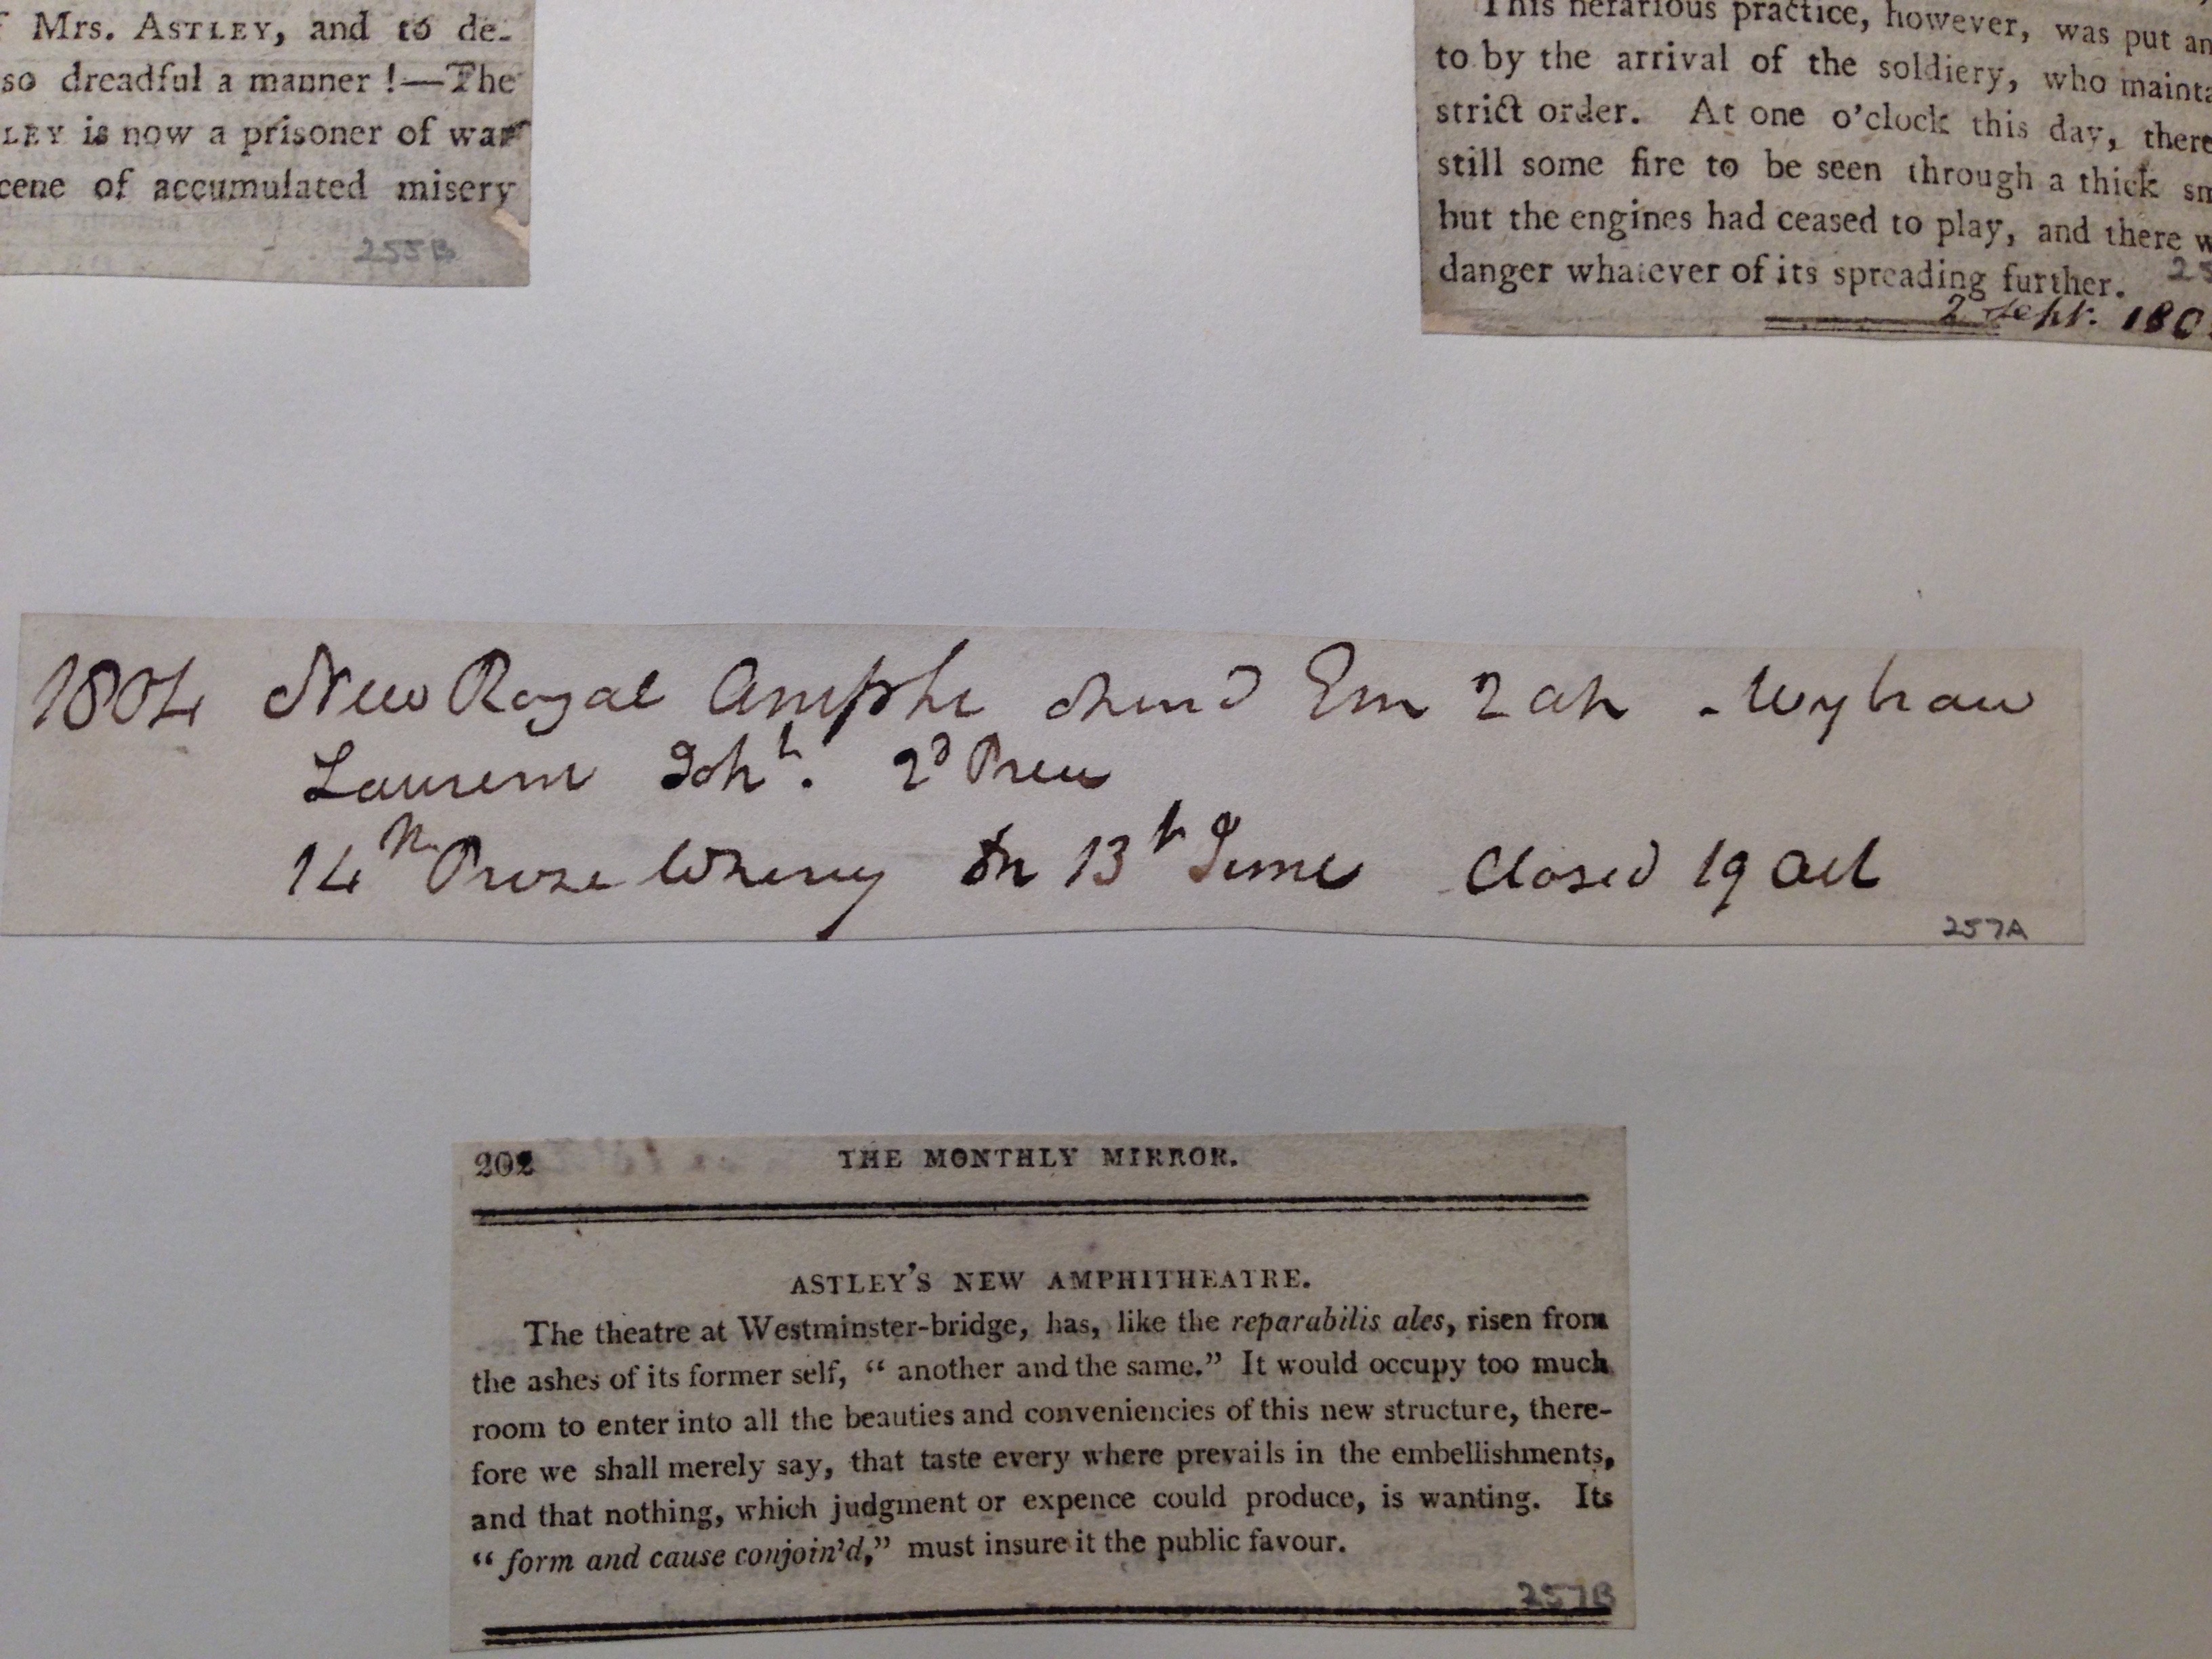 Mrs. ASTLEY, and to de-
so dreadful a manner !—The
LEY is now a prisoner of war
cene of accumulated misery
255B
This nefarious practice, however, was put an
to by the arrival of the soldiery, who mainta
strict order. At one o'clock this day, there
still some fire to be seen through a thick sm
but the engines had ceased to play, and there w
danger whatever of its spreading further.
2 Sept. 180
1804 New Royal Amphi Em 2 ah - Wybrow
Laurent 2d
14th Prize Wherry on 13th June Closed 19 Oct
257A
202 THE MONTHLY MIRROR.
ASTLEY'S NEW AMPHITHEATRE.
The theatre at Westminster-bridge, has, like the reparabilis ales, risen from
the ashes of its former self, “ another and the same.” It would occupy too much
room to enter into all the beauties and conveniencies of this new structure, there-
fore we shall merely say, that taste every where prevails in the embellishments,
and that nothing, which judgment or expence could produce, is wanting. Its
“ form and cause conjoin'd,” must insure it the public favour.
257B